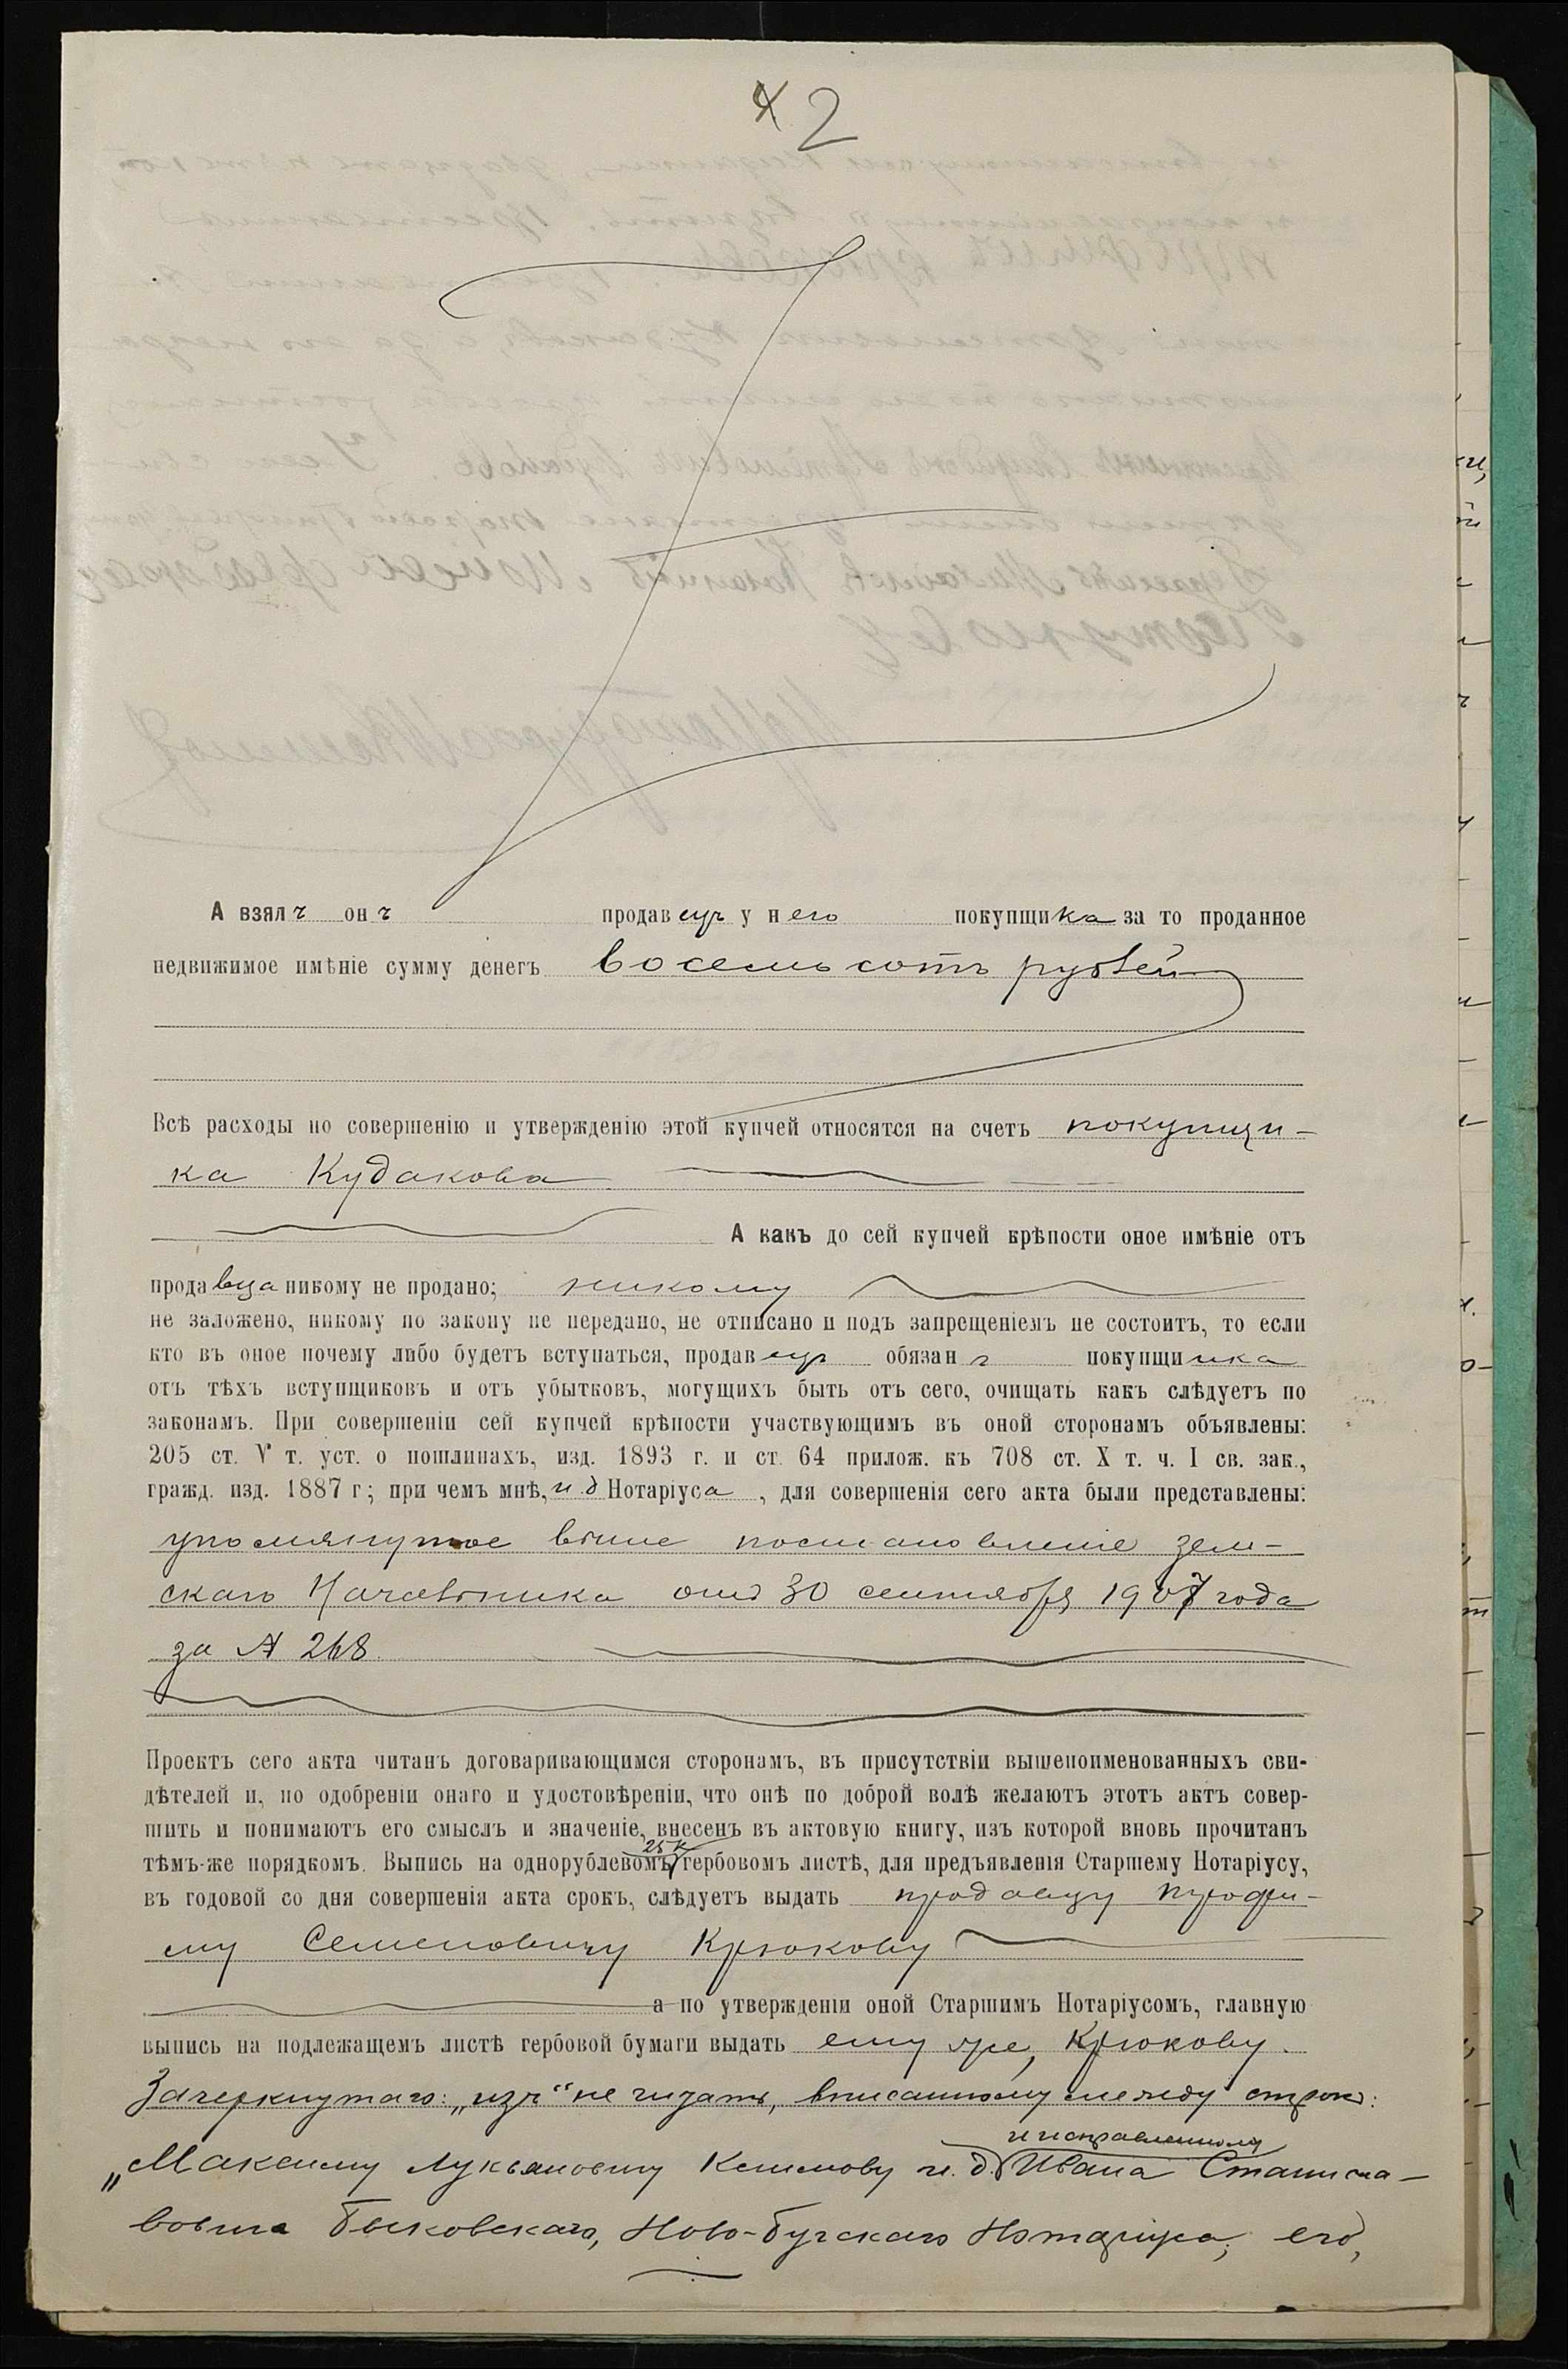 2
А взялъ онъ продавецъ у него покупщика за то проданное
недвижимое имѣніе сумму денегъ восемьсотъ рублей
Всѣ расходы по совершенію и утвержденію этой купчей относятся на счетъ покупщи-
ка Кудакова
А какъ до сей купчей крѣпости оное имѣніе отъ
продавца никому не продано; никому
не заложено, никому по закону не передано, не отписано и подъ запрещеніемъ не состоитъ, то если
кто въ оное почему либо будетъ вступаться, продавецъ обязанъ покупщика
отъ тѣхъ вступщиковъ и отъ убытковъ, могущихъ быть отъ сего, очищать какъ слѣдуетъ по
законамъ. При совершеніи сей купчей крѣпости участвующимъ въ оной сторонамъ объявлены:
205 ст. V т. уст. о пошлинахъ, изд. 1893 г. и ст. 64 прилож. къ 708 ст. X т. ч. I св. зак.,
гражд. изд. 1887 г; при чемъ мнѣ, и.д Нотаріуса, для совершенія сего акта были представлены:
упомянутое выше постановленіе Зем-
скаго Начальника отъ 30 сентября 1907 года
за № 268.
Проектъ сего акта читанъ договаривающимся сторонамъ, въ присутствіи вышепоименованныхъ сви-
дѣтелей и, по одобреніи онаго и удостовѣреніи, что онѣ по доброй волѣ желаютъ этотъ актъ совер-
шить и понимаютъ его смыслъ и значеніе, внесенъ въ актовую книгу, изъ которой вновь прочитанъ
25 к
тѣмъ-же порядкомъ. Выпись на однорублевомъ гербовомъ листѣ, для предъявленія Старшему Нотаріусу,
въ годовой со дня совершенія акта срокъ, слѣдуетъ выдать продавцу Трофи-
му Семеновичу Крюкову
а по утвержденіи оной Старшимъ Нотаріусомъ, главную
выпись на подлежащемъ листѣ гербовой бумаги выдать ему же, Крюкову.
Зачеркнутаго: „изъ" не читать, вписанному между строкъ:
и исправленному
„Максиму Лукьяновичу и. д. Ивана Станисла-
вовича Быковскаго, Ново-Бугскаго Нотаріуса, его,